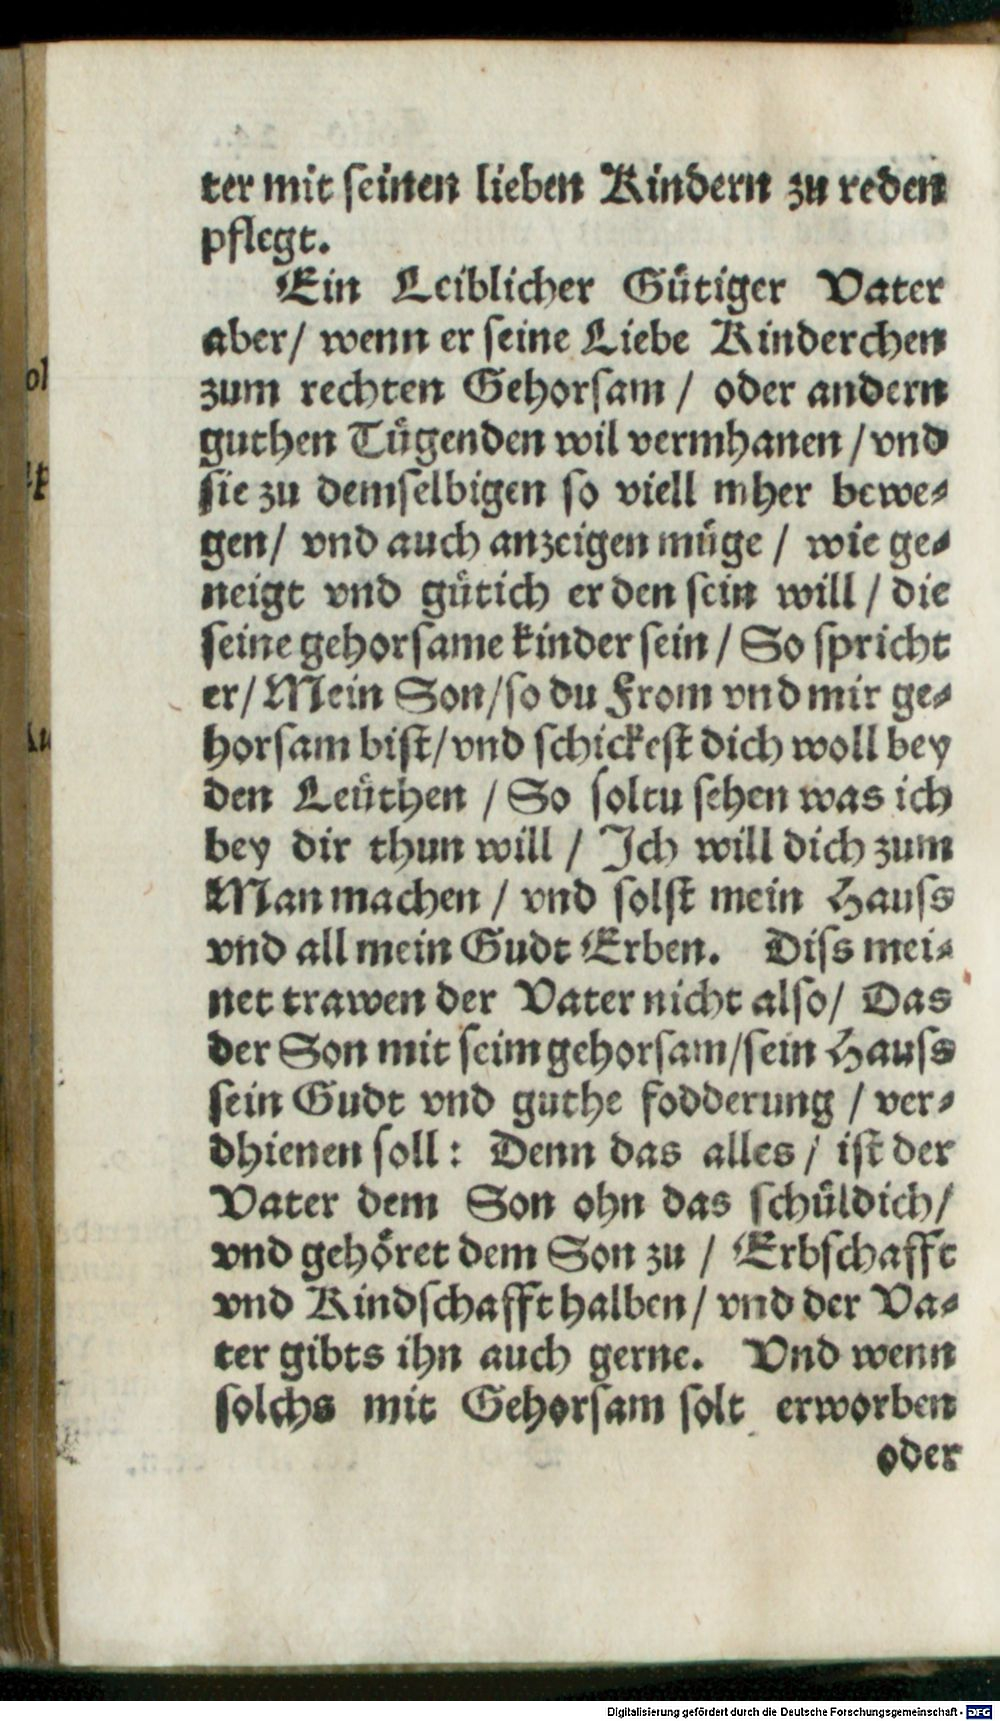 ter mit seinen lieben Kindern zu reden
pflegt.
Ein Leiblicher Gütiger Vater
aber/ wenn er seine Liebe Kinderchen
zum rechten Gehorsam / oder andern
guthen Tügenden wil vermhanen / vnd
sie zu demselbigen so viell mher bewe-
gen/ vnd auch anzeigen müge / wie ge-
neigt vnd gütich er den sein will / die
seine gehorsame kinder sein / So spricht
er/ Mein Son/so du From vnd mir ge-
horsam bist/vnd schickest dich woll bey
den Leüthen / So soltu sehen was ich
bey dir thun will / Ich will dich zum
Man machen / vnd solst mein Hauss
vnd all mein Gudt Erben. Diss mei-
net trawen der Vater nicht also/ Das
der Son mit seim gehorsam/sein Hauss
sein Gudt vnd guthe fodderung / ver-
dhienen soll: Denn das alles / ist der
Vater dem Son ohn das schüldich/
vnd gehöret dem Son zu / Erbschafft
vnd Kindschafft halben/ vnd der Va-
ter gibts ihn auch gerne. Vnd wenn
solchs mit Gehorsam solt erworben
oder
Digitalisierung gefördert durch die Deutsche Forschungsgemeinschaft - DFG